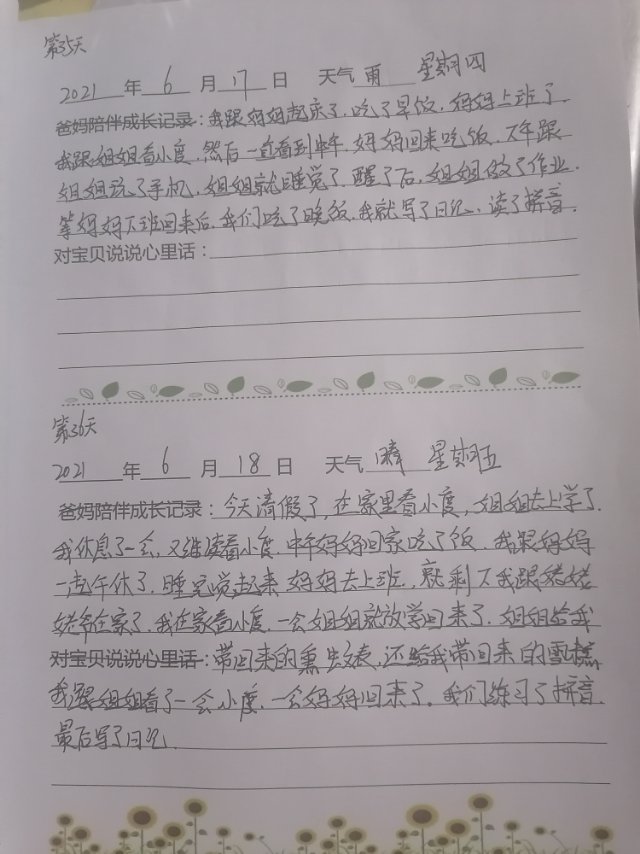 第35天
2021 年 6 月 17 日 天气 雨 星期四
爸妈陪伴成长记录:我跟妈妈起床了,吃了早饭,妈妈上班了
我跟姐姐看小度,然后一直看到中午,妈妈回来吃饭,下午跟
姐姐玩了手机,姐姐就睡觉了,醒了后,姐姐做了作业.
等妈妈下班回来后,我们吃了晚饭,我就写了日记,读了拼音.
对宝贝说说心里话:
第36天
2021 年 6 月 18 日 天气 晴 星期五
爸妈陪伴成长记录:今天请假了,在家里看小度,姐姐去上学了.
我休息了一会,又继续看小度,中午妈妈回家吃了饭,我跟妈妈
一起午休了,睡完觉起来妈妈去上班,就剩下我跟姥姥
姥爷在家了,我在家看小度,一会姐姐就放学回来了,姐姐给我
对宝贝说说心里话:带回来的熏,还给我带回来的雪糕,
我跟姐姐看了一会小度,一会妈妈回来了,我们练习了拼音,
最后写了日记.